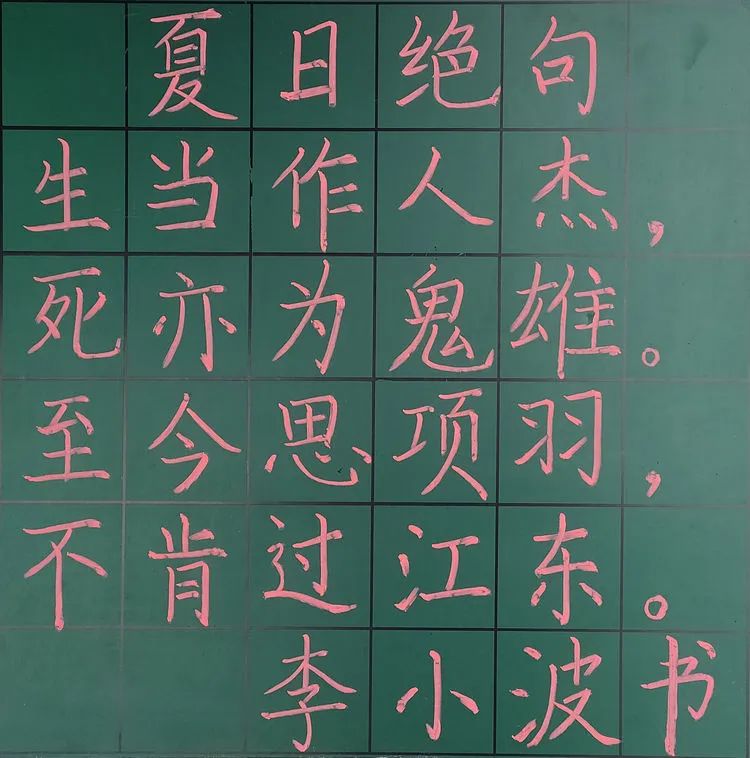 夏日绝句
生当作人杰，
死亦为鬼雄。
至今思项羽，
不肯过江东。
李小波书